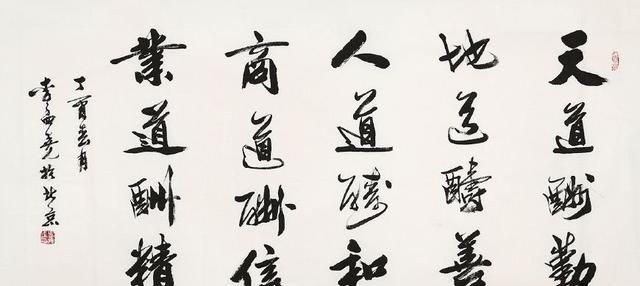 天道酬勤
地道醻善
人道醻和
商道酬信
業道酬精
丁酉春月
李孟尧於北京